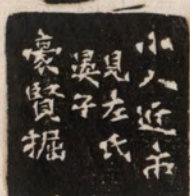 小人近市
見左氏
晏子
豪賢掘